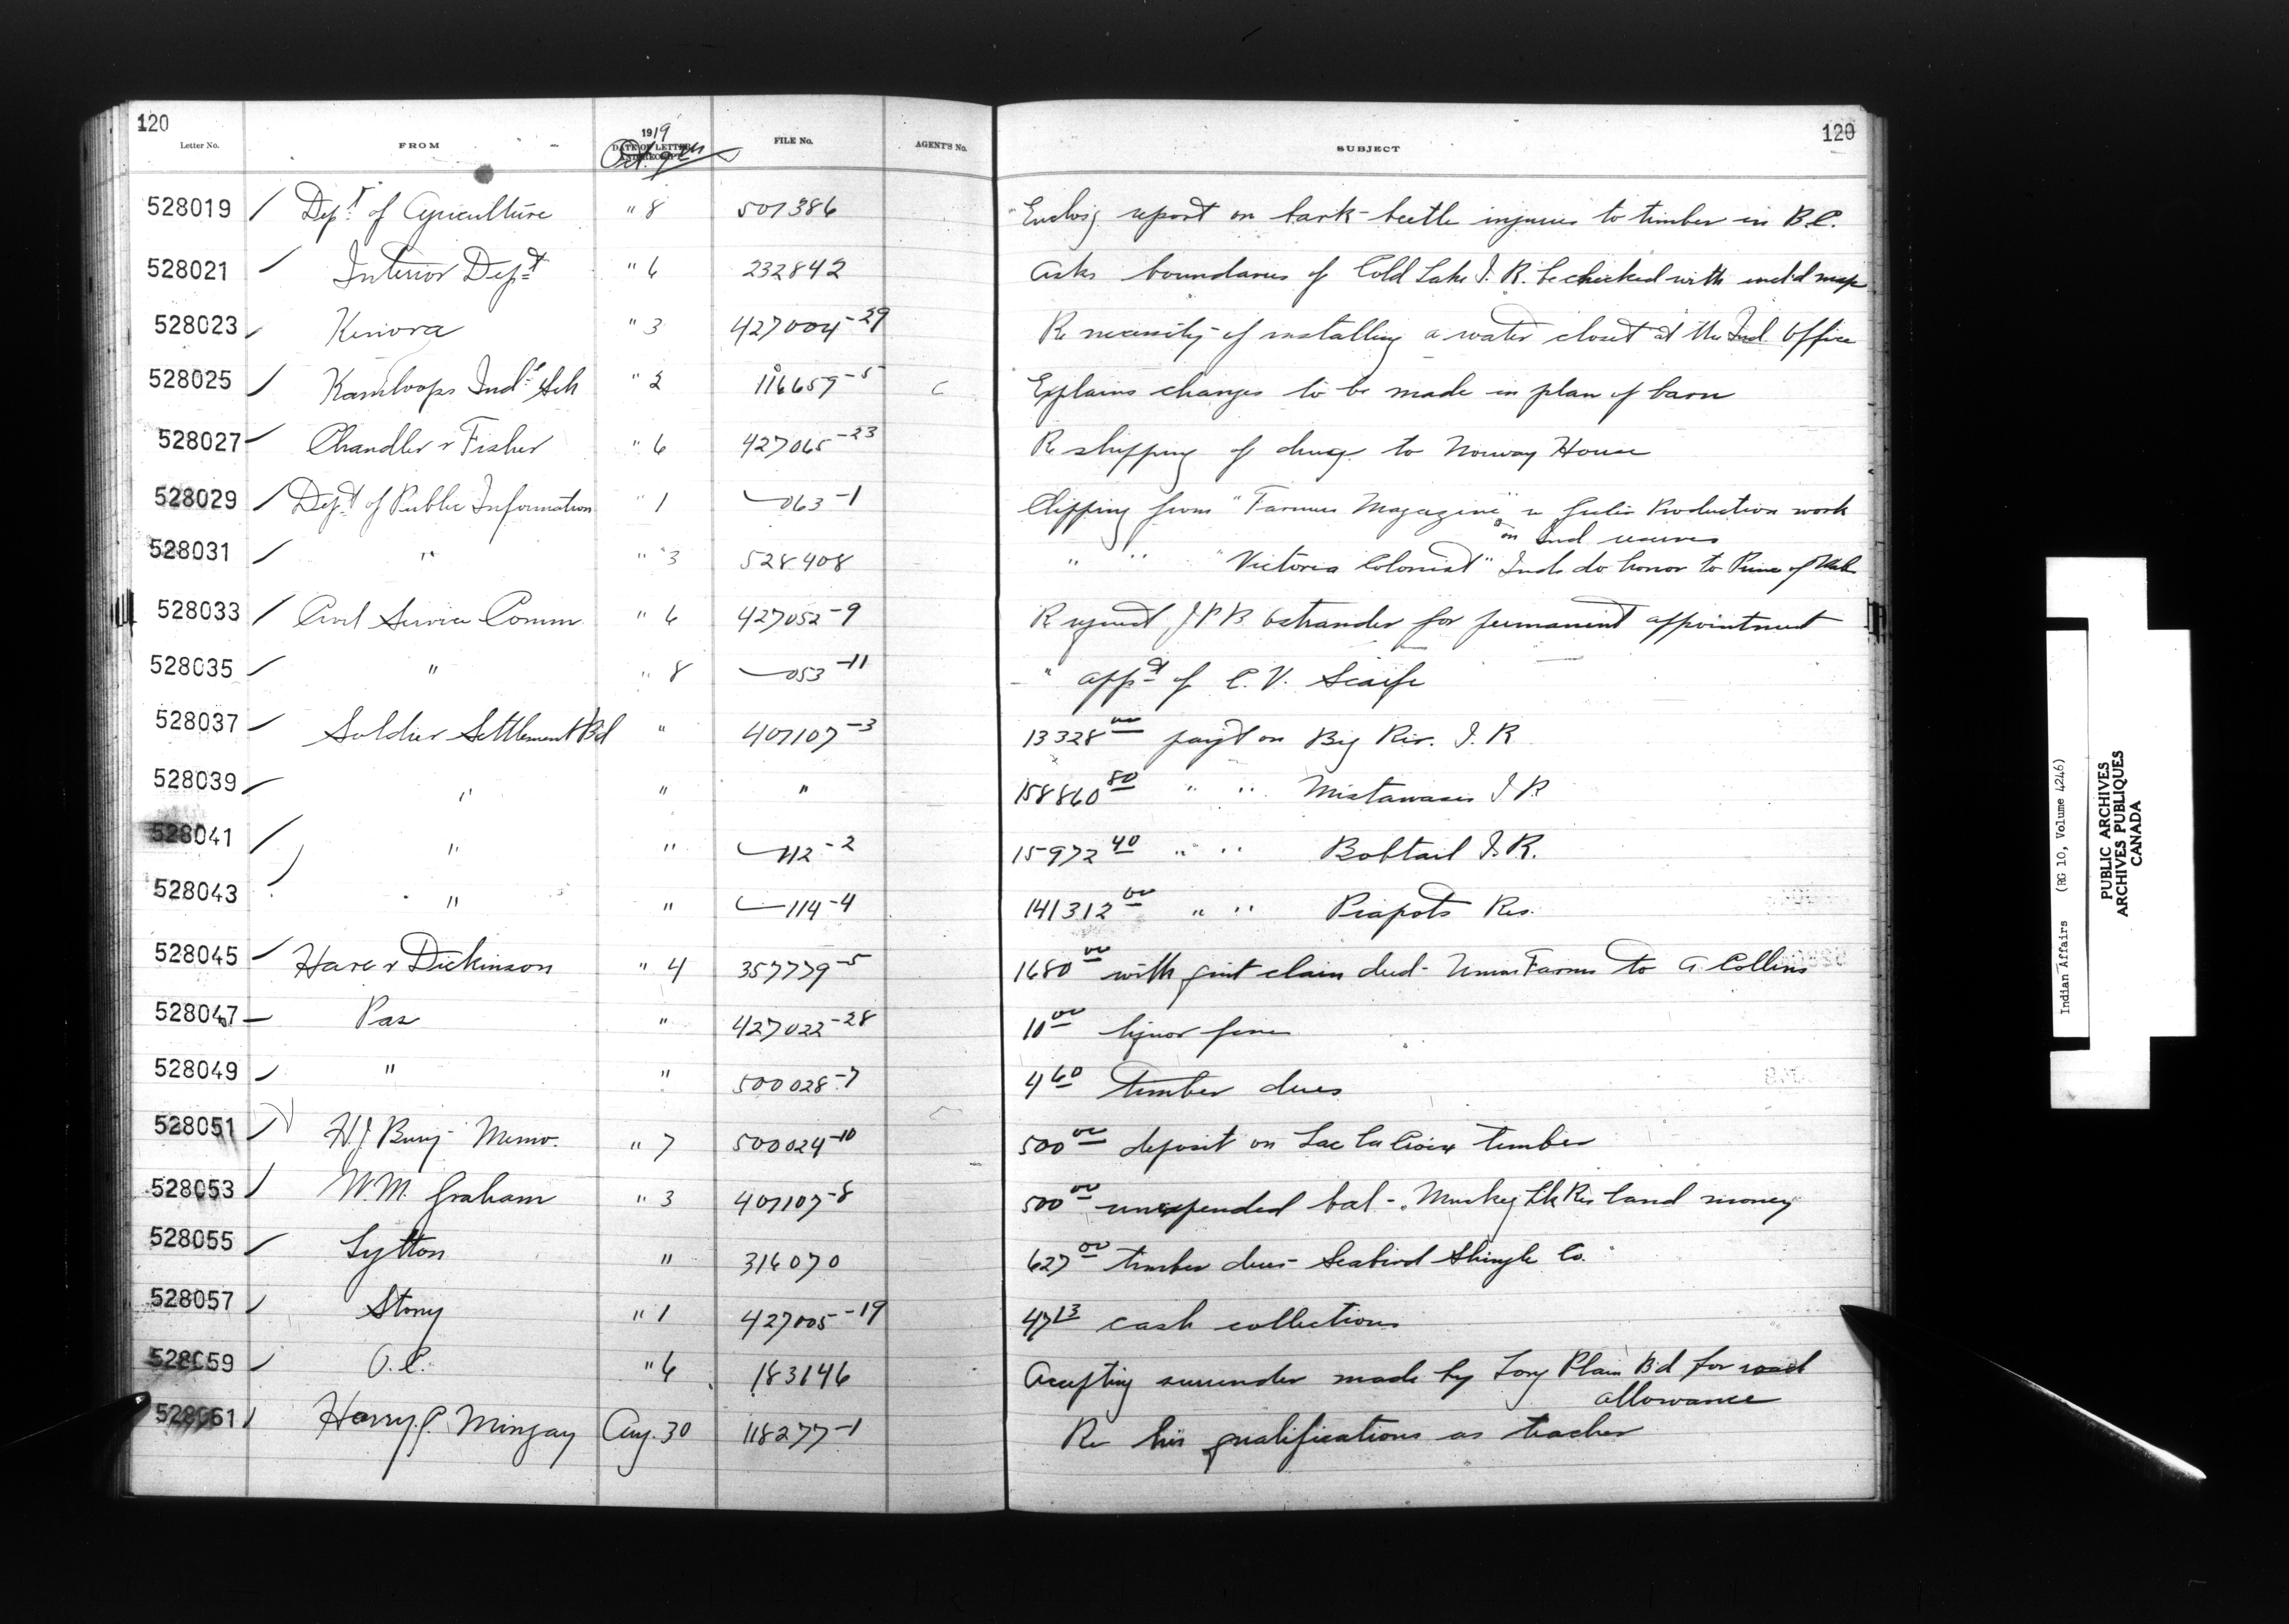 120 120
Letter No. FROM 1919 DATE OF LETTER AND RECEIPT FILE No. AGENT'S No. SUBJECT
Oct. 9th
528019 / Dept. of Agriculture " 8 507386 Enclosg report on bark-beetle injuries to timber in B.C.
528021 / Interior Dept " 6 232842 Asks boundaries of Cold Lake I. R. be checked with encl'd map
528023 / Kenora " 3 427004-29 Re necessity of installing a water closet at the Ind. Office
528025 / Kamloops Indl Sch " 2 116659-5 C Explains changes to be made in plan of barn
528027 / Chandler & Fisher " 6 427065-23 Re shipping of drugs to Norway House
528029 / Dept of Public Information " 1 063-1 Clipping from "Farmers Magazine" re Production work
on Ind reserves
528031 / " " 3 528408 " " "Victoria Colonist" Inds do honor to Prince of Wales
528033 / Civil Service Comm " 6 427052-9 Re request J P B Ostrander for permanent appointment
528035 / " " 8 053-11 " appt of C. V. Scaife
528037 / Soldier Settlement Bd " 407107-3 13328 00 payt on Big Riv. I. R
528039 / " " " 158860 80 " " Mistawasis I R
528041 / " " 112-2 15972 40 " " Bobtail I. R.
528043 " " 114-4 141312 00 " " Piapots Res.
528045 / Hare & Dickinson " 4 357779-5 1680 00 with quit claim deed - Farms to G. Collins
528047 - Pas " 427022-28 10 00 liquor fine
528049 / " " 500028-7 4 60 timber dues
528051 / H.J Bury - Memo. " 7 500024-10 500 00 deposit on Lac la Croix timber
528053 / W. M. Graham " 3 407107-8 500 00 unexpended bal - Muskeg Lk Res land money
528055 / Lytton " 316070 627 00 timber dues - Seabird Shingle Co.
528057 / Stony " 1 427005-19 47 13 cash collections
528059 / O. C. " 6 183146 Accepting surrender made by Long Plain Bd for road
allowance
528061 / Harry P. Mingay Aug. 30 118277-1 Re his qualifications as teacher
Indian Affairs (RG 10, Volume 4246)
PUBLIC ARCHIVES
ARCHIVES PUBLIQUES
CANADA